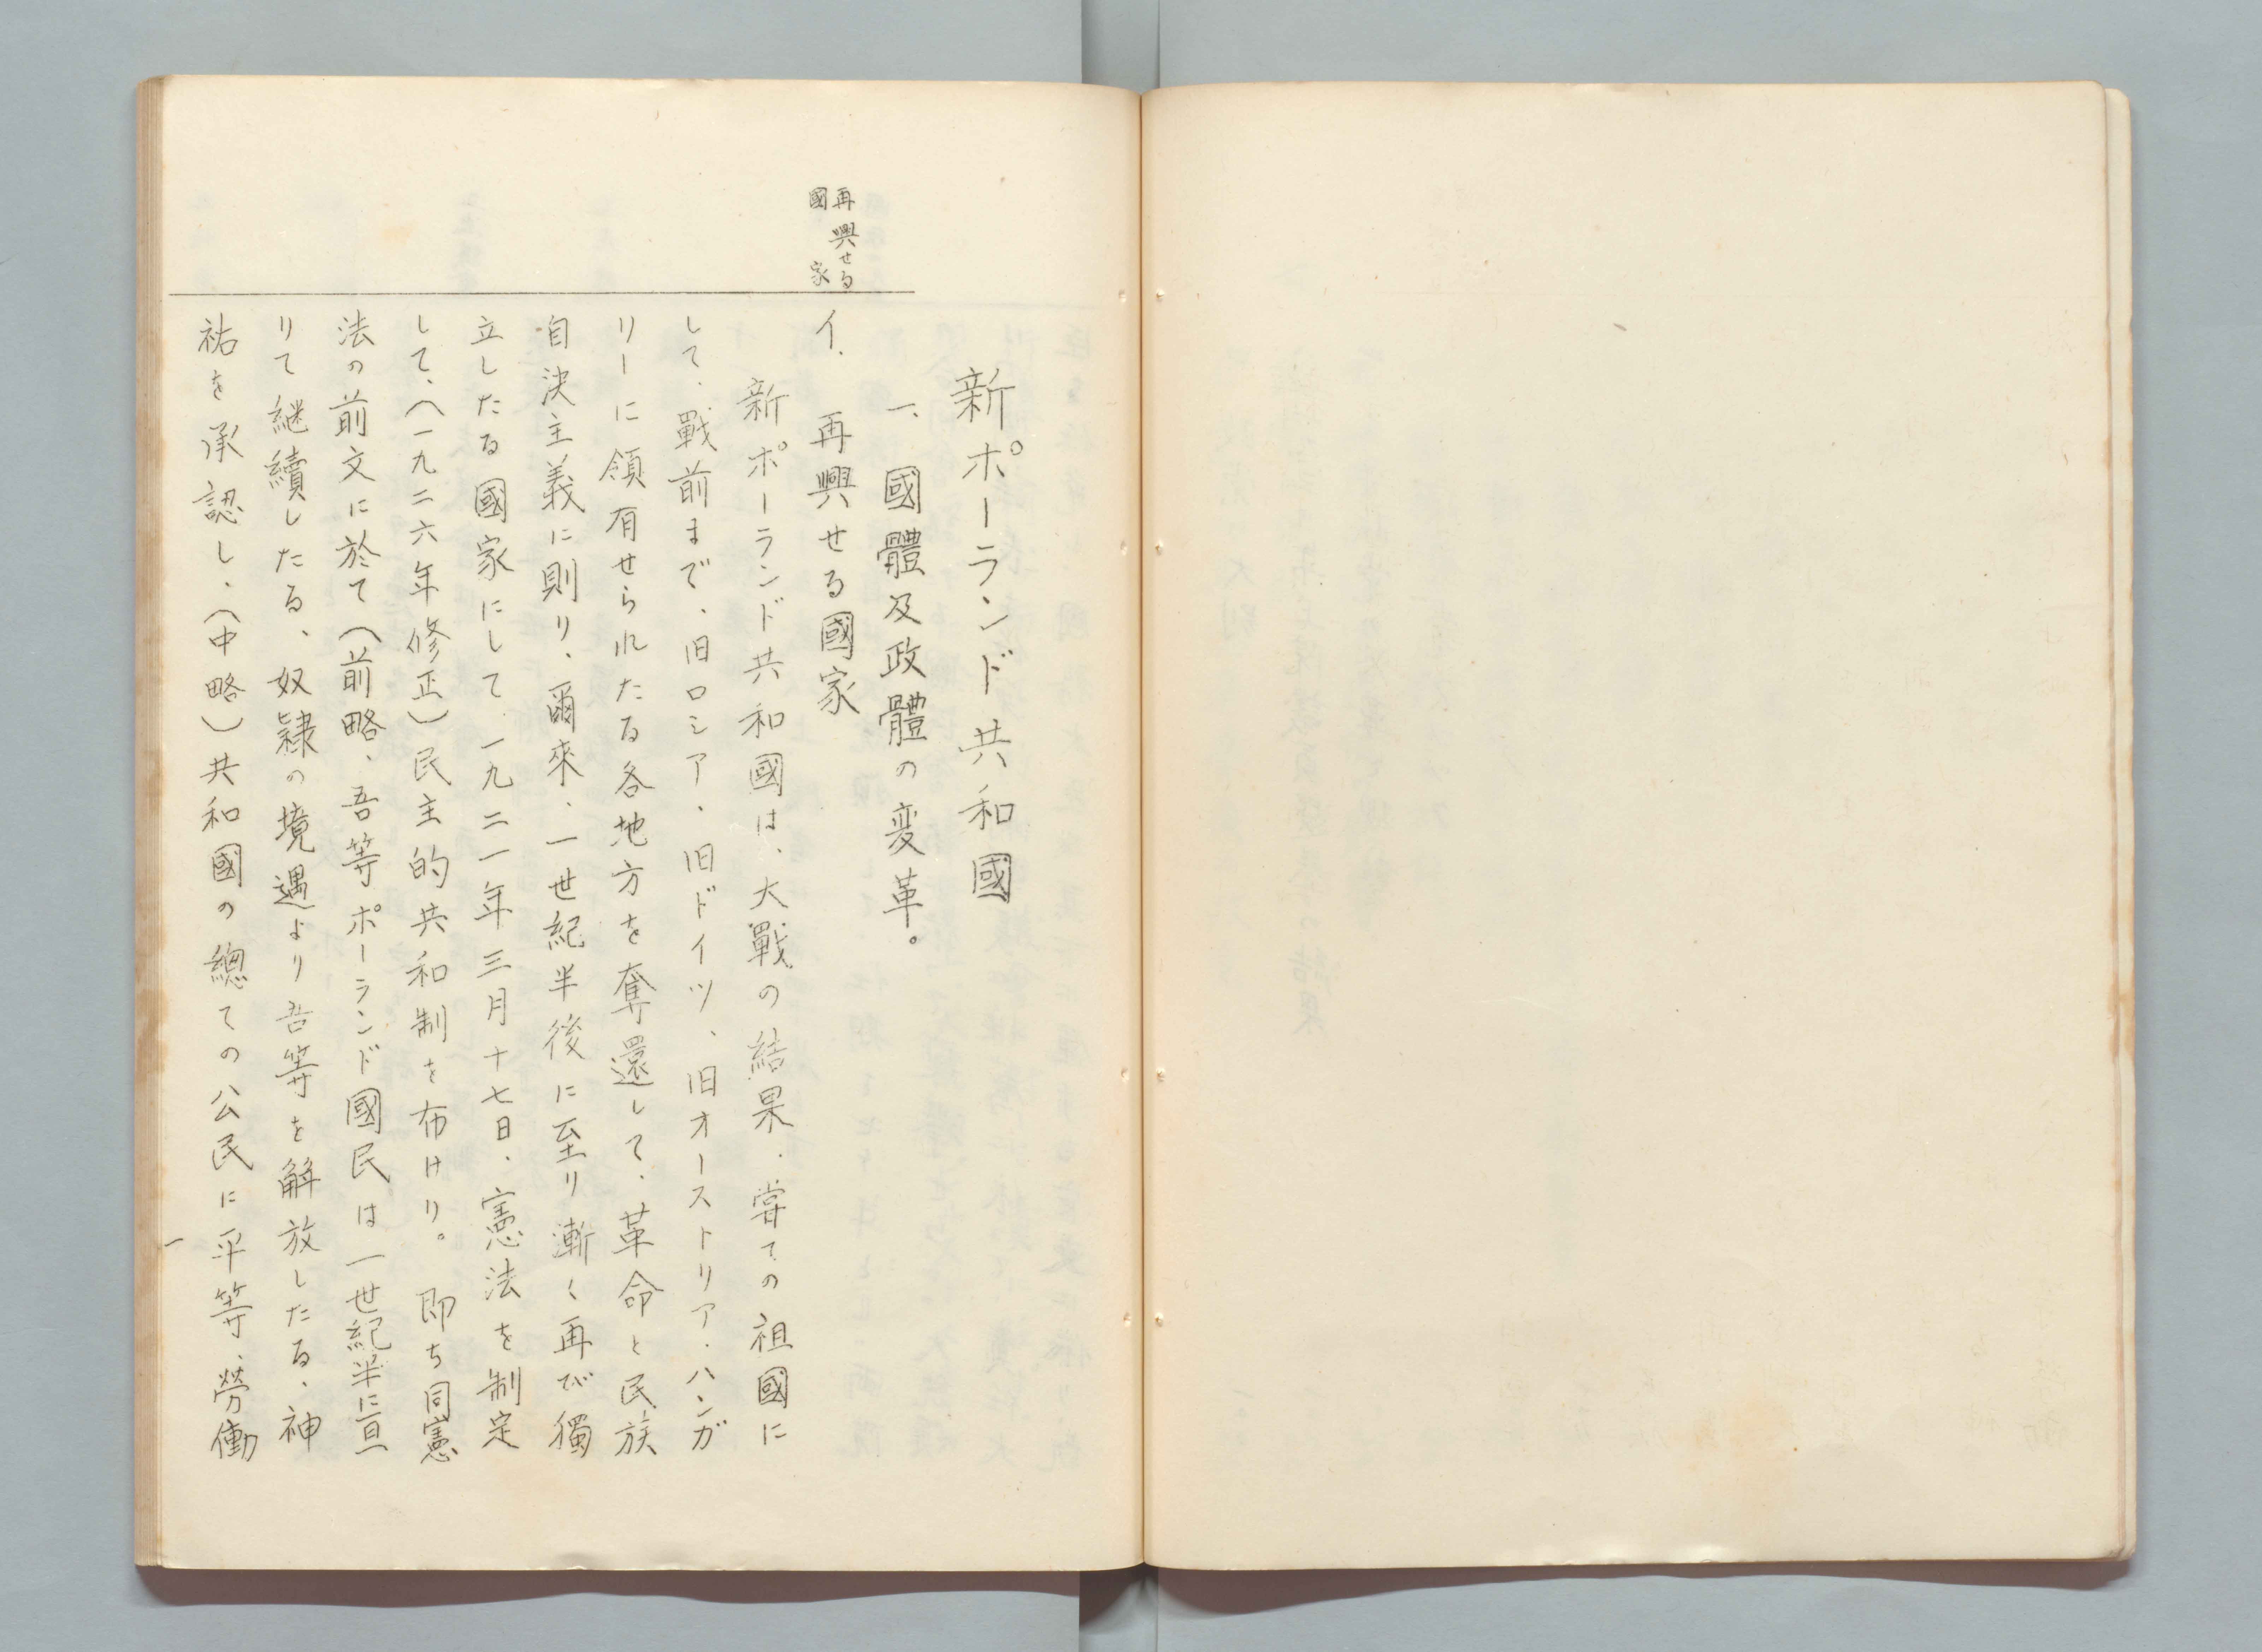 新ポーランド共和國
一、國體及政體の変革。
再興せる
國家
イ.　再興せる國家
新ポーランド共和國は、大戰の結果、嘗ての祖國に
して、戰前まで、旧ロシア、旧ドイツ、旧オーストリア、ハンガ
リーに領有せられたる各地方を奪還して、革命と民族
自決主義に則り、爾來、一世紀半後に至り漸く再び獨
立したる國家にして、一九二一年三月十七日、憲法を制定
して、（一九二六年修正）民主的共和制を布けり。即ち同憲
法の前文に於て（前略、吾等ポーランド國民は一世紀半に亘
りて継續したる、奴隷の境遇より吾等を解放したる、神
祐を承認し、（中略）共和國の總ての公民に平等、勞働
一